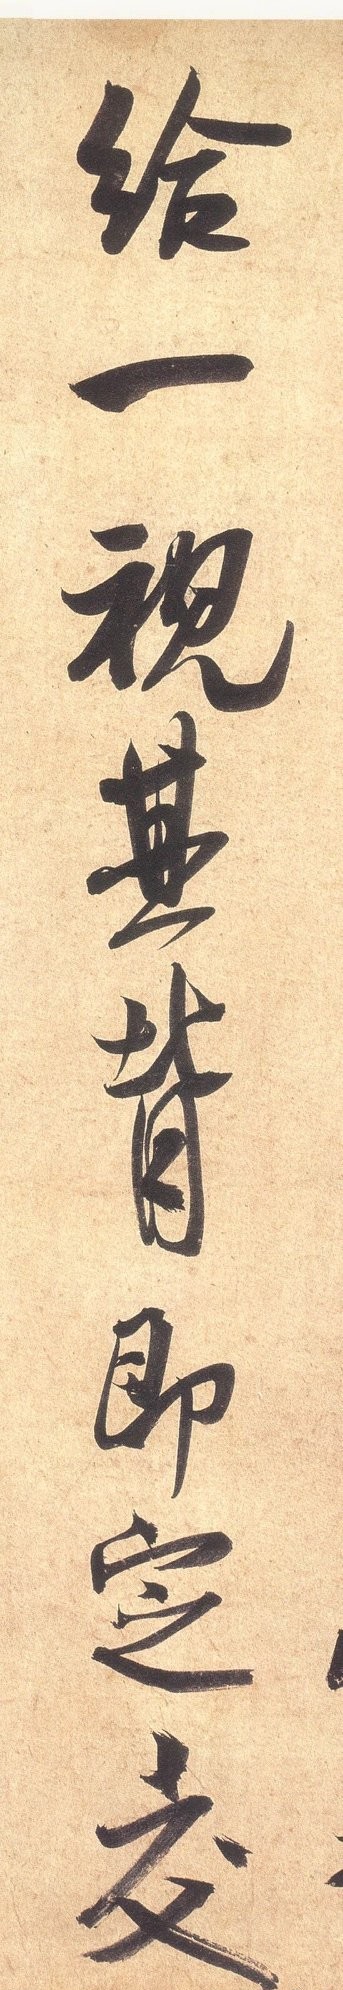 给一视其背即定交